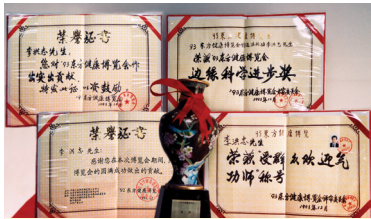 荣誉证书
李洪志先生:
您对'93东方健康博览会作
出突出贡献,
特发此证,以资鼓励
'93东方健康博览会
'93东方健康博览会
李洪志先生:
荣获'93东方健康博览会
边缘科学进步奖
'93东方健康博览会
1993年12月
荣誉证书
李洪志先生:
感谢您在本次博览会期间,
博览会的圆满成功做出的贡献。
'93东方健康博览会
93东方健康博览
李洪志先生:
荣获受群众欢迎气
功师称号
93东方健康博览会
1993.12月